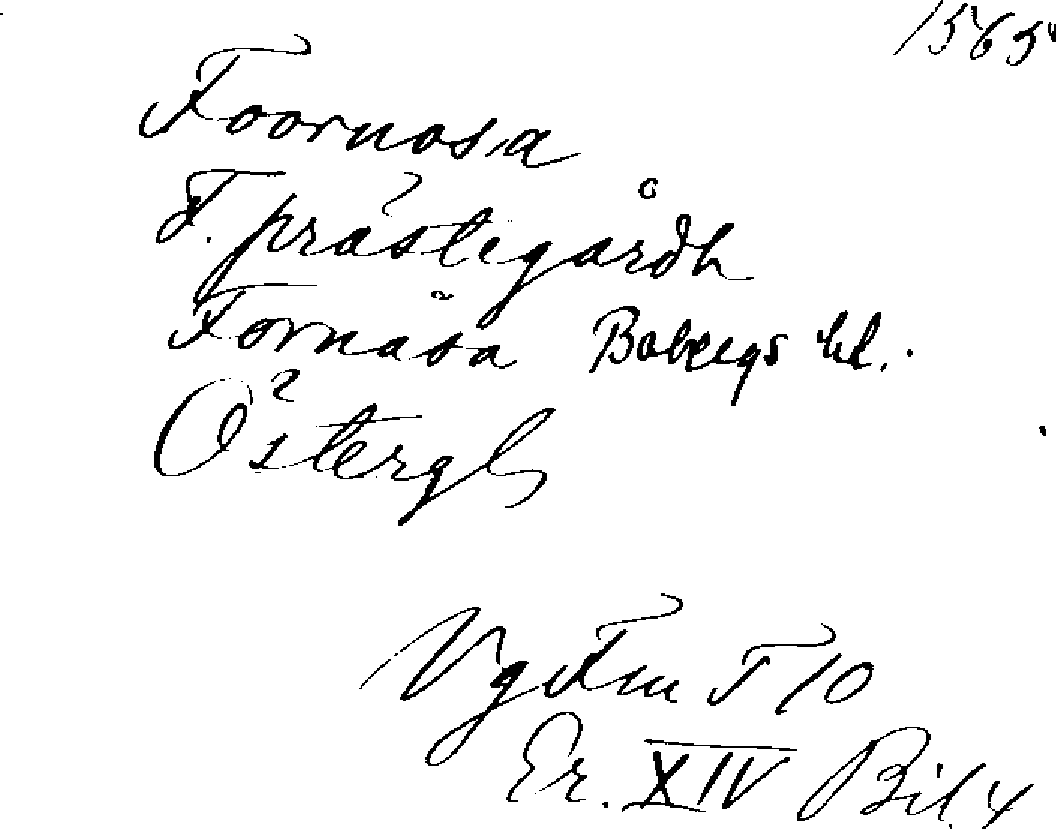 1565
Foornosa
F. prästegårdh
Fornåsa Bobergs hd.
Östergl
Vg Fm T 10
Er. XIV Bil. 4